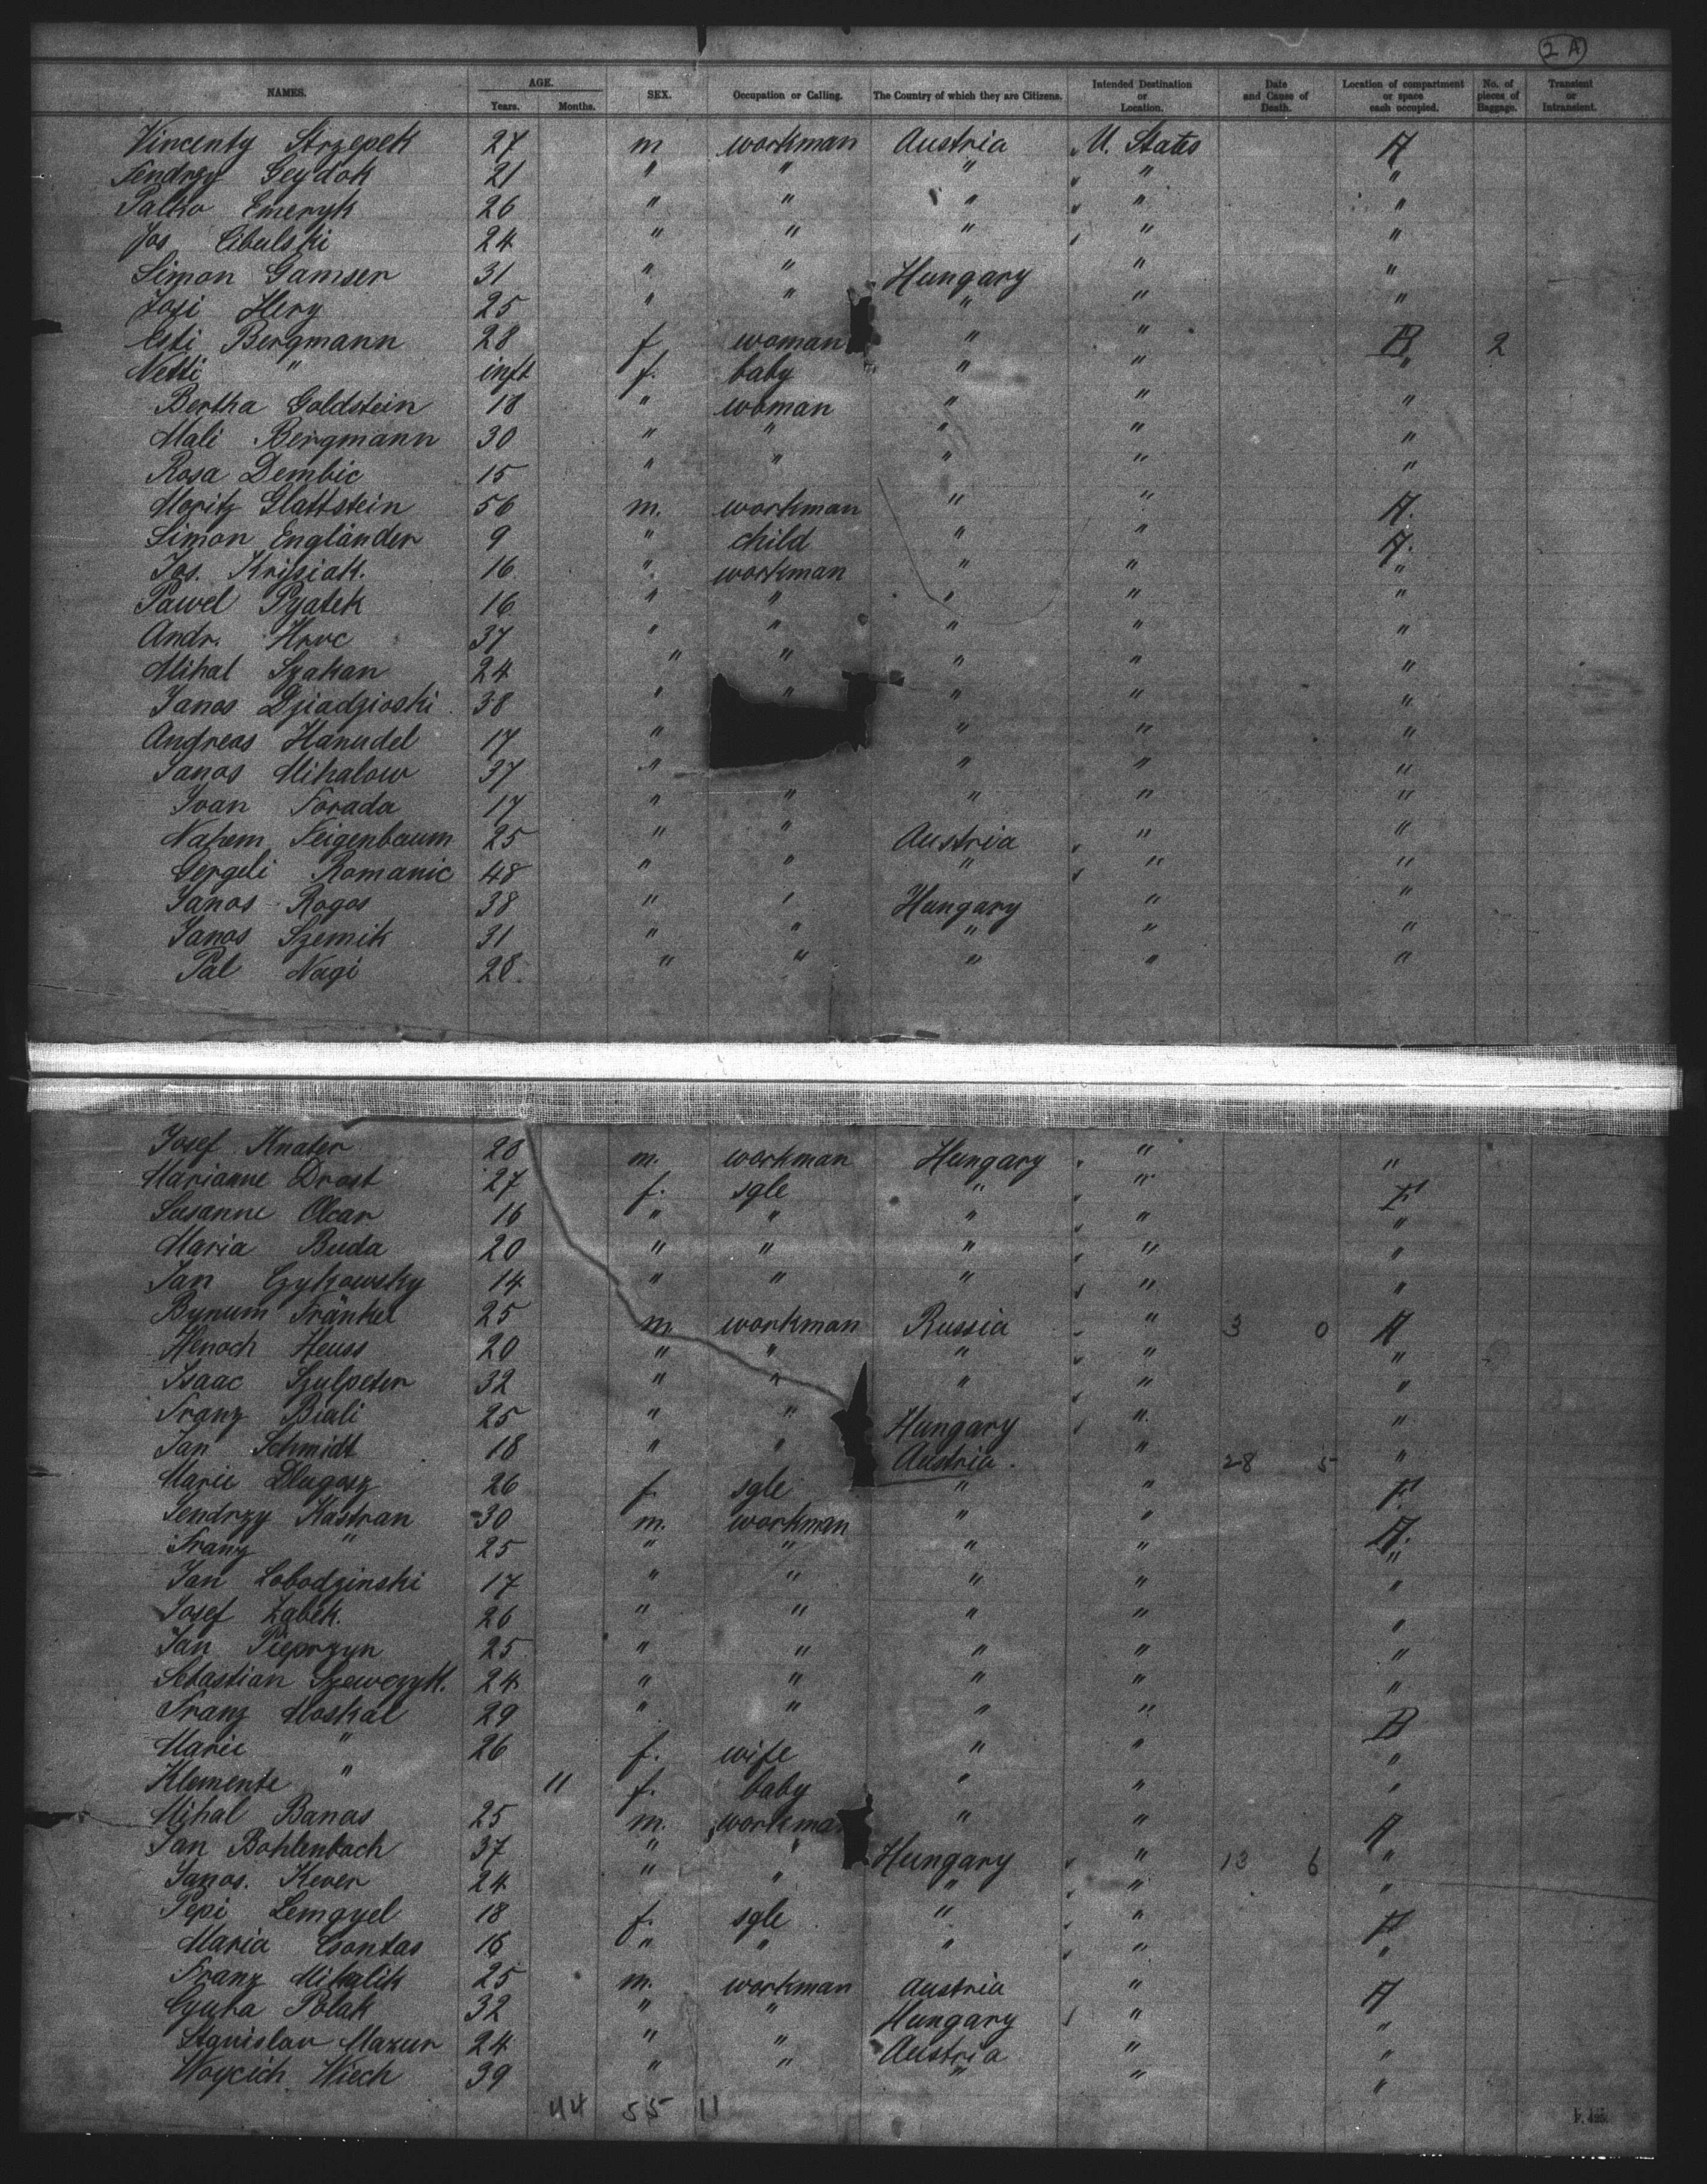 2 A
NAMES. AGE. Years. Months. SEX. Occupation or Calling. The Country of which they are Citizens. Intended Destination or Location. Date and Cause of Death. Location of compartment or space each occupied. No. of pieces of Baggage. Transient or Intransient.
Vincenty Strzepek 27 m workman Austria U. States A
Jendrzy Geydok 21 " " " " "
Palko Emeryk 26 " " " " "
Jos Cibulski 24 " " " " "
Simon Gamser 31 " " Hungary " "
Josi Hery 25 " " " " "
Esti Bergmann 28 f woman " " B 2
Netti " inft f. baby " " "
Bertha Goldstein 18 " woman " " "
Mali Bergmann 30 " " " " "
Rosa Dembic 15 " " " " "
Moritz Glattstein 56 m. workman " " A.
Simon Engländer 9 " child " " A.
Jos. Krissiak. 16 " workman " " "
Pawel Pyatek 16 " " " " "
Andr. Hruc 37 " " " " "
Mihal Szakan 24 " " " " "
Janos Dziadzioski 38 " " " " "
Andreas Hanudel 17 " " " "
Janos Mihalow 37 " " " "
Ivan Forada 17 " " " " "
Nahem Feigenbaum 25 " " Austria " "
Gergeli Romanic 48 " " " " "
Janos Rogos 38 " " Hungary " "
Janos Szemik 31 " " " " "
Pal Nagi 28. " " " " "
Josef Knater 28 m. workman Hungary " "
Marianne Drost 27 f. sgle " " F
Susanne Olcar 16 " " " " "
Maria Buda 20 " " " " "
Jan Czykowsky 14 " " " " "
Bunum Fränkel 25 m workman Russia " 3 0 A
Henoch Heuss 20 " " " " "
Isaac Szulpeter 32 " " " " "
Franz Biali 25 " " Hungary " "
Jan Schmidt 18 " " Austria. " 28 5 "
Marie Dlugosz 26 f. sgle " " F.
Jendrzy Kastran 30 m. workman " " A.
Franz " 25 " " " " "
Jan Lobodzinski 17 " " " " "
Josef Zabek. 26 " " " " "
Jan Pieprzyn 25 " " " " "
Sebastian Szewczyk. 24 " " " " "
Franz Moskal 29 " " " " B
Marie " 26 f. wife " " "
Klemente " 11 f. baby " " "
Mihal Banas 25 m. workma " " A
Jan Bohlenbach 37 " " Hungary " 13 6 "
Janos. Kever 24 " " " " "
Pepi Lemgyel 18 f. sgle " " F
Maria Csontas 16 " " " " "
Franz Mihalik 25 m. workman Austria " A
Gyura Polak 32 " " Hungary " "
Stanislav Mazur 24 " " Austria " "
Woycich Wiech 39 " " " " "
44 55 11